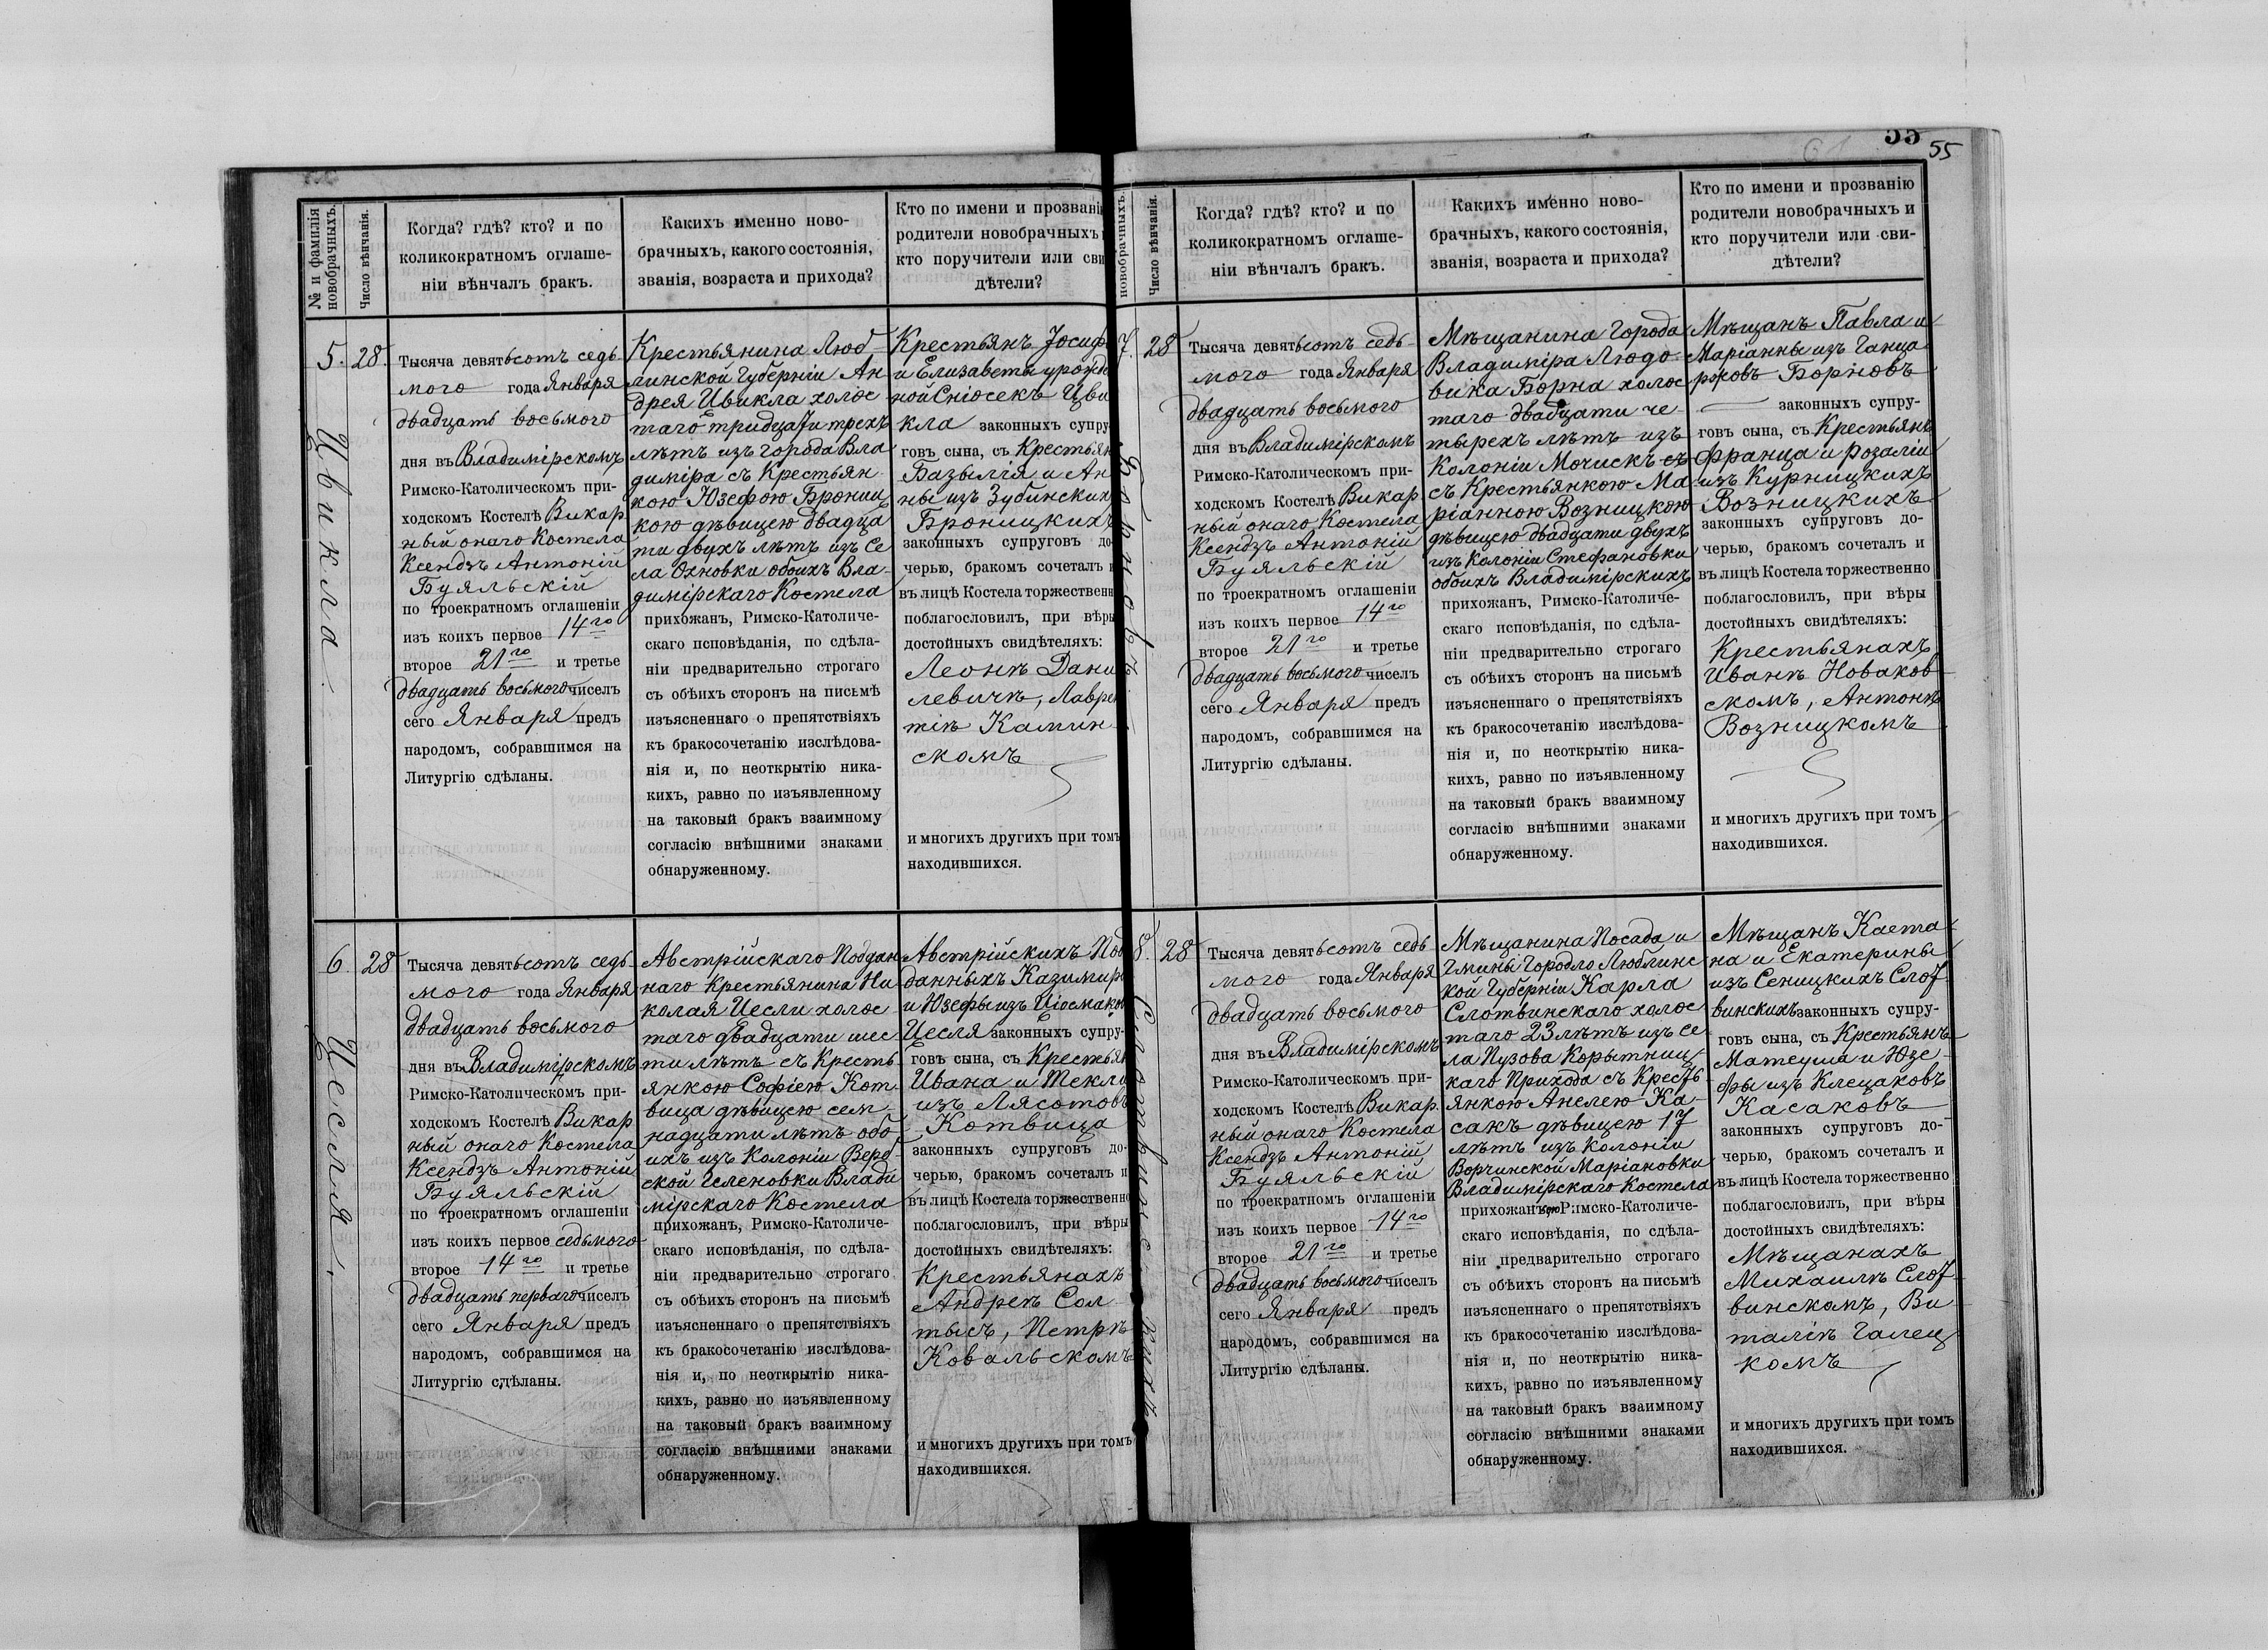 55
55
№ и фамилія
новобрачныхъ.
Число вѣнчанія.
Когда? гдѣ? кто? и по
коликократномъ оглаше-
ніи вѣнчалъ бракъ.
Какихъ именно ново-
брачныхъ, какого состоянія,
званія, возраста и прихода?
Кто по имени и прозванію
родители новобрачныхъ
кто поручители или сви
дѣтели?
5.
Цвикла.
28.
Тысяча девятьсотъ седь-
мого года Января
двадцать восьмого
дня въ Владимірскомъ
Римско-Католическомъ при-
ходскомъ Костелѣ Викар
ный онаго Костела
Ксендзъ Антоній
Буяльскій
по троекратномъ оглашеніи
изъ коихъ первое 14го
второе 21го и третье
двадцать восьмого чиселъ
сего Января предъ
народомъ, собравшимся на
Литургію сдѣланы.
Крестьянина Люб-
линской Губерніи Ан
дрея Цвикла холос
таго тридцати трехъ
лѣтъ изъ города Вла
диміра съ Крестьян-
кою Юзефою Брониц
кою дѣвицею двадца
ти двухъ лѣтъ изъ Се
ла Охновки обоихъ Вла-
димірскаго Костела
прихожанъ, Римско-Католиче-
скаго псповѣданія, по сдѣла-
ніи предварительно строгаго
съ обѣихъ сторонъ на письмѣ
изъясненнаго о препятствіяхъ
къ бракосочетанію изслѣдова-
нія и, по неоткрытію ника-
кихъ, равно по изъявленному
на таковый бракъ взаимному
согласію внѣшними знаками
обнаруженному.
Крестьянъ Іосифа
и Елизаветы урожде
ной Сніосекъ Цви
кла законныхъ супру
говъ сына, съ Крестьян
Базылія и Ан
ны изъ Зубинскихъ
Броницкихъ
законныхъ супруговъ до
черью, бракомъ сочеталъ и
въ лицѣ Костела торжественн
поблагословилъ, при вѣры
достойныхъ свидѣтеляхъ:
Леонѣ Дани
левичѣ, Лаврен
тіѣ Камин-
скомъ
и многихъ другихъ при томъ
находившихся.
6.
Цесля.
28
Тысяча девятьсотъ седь-
мого года Января
двадцать восьмого
дня въ Владимірскомъ
Римско-Католическомъ при-
ходскомъ Костелѣ Викар
ный онаго Костела
Ксендзъ Антоній
Буяльскій
по троекратномъ оглашеніи
изъ коихъ первое седьмого
второе 14го и третье
двадцать перваго чиселъ
сего Января предъ
народомъ, собравшимся на
Литургію сдѣланы.
Австрійскаго Поддан
наго Крестьянина Ни
колая Цесли холос
таго двадцати шес
ти лѣтъ съ Кресть
янкою Софіею Кот-
вица дѣвицею сем-
надцати лѣтъ обо
ихъ изъ Колоніи Верб-
ской Геленовки Влади
мірскаго Костела
прихожанъ, Римско-Католиче-
скаго исповѣданія, по сдѣла-
ніи предварительно строгаго
съ обѣихъ сторонъ на письмѣ
изъясненнаго о препятствіяхъ
къ бракосочетанію изслѣдова-
нія и, по неоткрытію ника-
кихъ, равно по изъявленному
на таковый бракъ взаимному
согласію внѣшними знаками
обнаруженному.
Австрійскихъ Под
данныхъ Казимира
и Юзефы изъ
Цесля законныхъ супру-
говъ сына, съ Крестьян
Ивана и Текли
изъ Лясотовъ
Котвица
законныхъ супруговъ до-
черью, бракомъ сочеталъ и
въ лицѣ Костела торжественно
поблагословилъ, при вѣры
достойныхъ свидѣтеляхъ:
Крестьянахъ
Андреѣ Сол
тысъ, Петрѣ
Ковальскомъ
и многихъ другихъ при томъ
находившихся.
новобрачныхъ.
Число вѣнчанія.
Когда? гдѣ? кто? и по
коликократномъ оглаше-
ніи вѣнчалъ бракъ.
Какихъ именно ново-
брачныхъ, какого состоянія,
званія, возраста и прихода?
Кто по имени и прозванію
родители новобрачныхъ и
кто поручители или сви-
дѣтели?
7.
28
Тысяча девятьсотъ седь-
мого года Января
двадцать восьмого
дня въ Владимірскомъ
Римско-Католическомъ при-
ходскомъ Костелѣ Викар
ный онаго Костела
Ксендзъ Антоній
Буяльскій
по троекратномъ оглашеніи
изъ коихъ первое 14го
второе 21го и третье
двадцать восьмого чиселъ
сего Января предъ
народомъ, собравшимся на
Литургію сдѣланы.
Мѣщанина Города
Владиміра Людо-
вика Борна холос
таго двадцати че-
тырехъ лѣтъ изъ
Колоніи Мочискъ съ
съ Крестьянкою Ма
ріанною Возницкою
дѣвицею двадцати двухъ
изъ Колоніи Стефановки
обоихъ Владимірскихъ
прихожанъ, Римско-Католиче-
скаго исповѣданія, по сдѣла-
ніи предварительно строгаго
съ обѣихъ сторонъ на письмѣ
изъясненнаго о препятствіяхъ
къ бракосочетанію изслѣдова-
нія и, по неоткрытію ника-
кихъ, равно по изъявленному
на таковый бракъ взаимному
согласію внѣшними знаками
обнаруженному.
Мѣщанъ Павла и
Маріанны изъ Ганца
рковъ Борновъ
законныхъ супру-
говъ сына, съ Крестьянъ
Франца и Розаліи
изъ Курницкихъ
Возницкихъ
законныхъ супруговъ до-
черью, бракомъ сочеталъ и
въ лицѣ Костела торжественно
поблагословилъ, при вѣры
достойныхъ свидѣтеляхъ:
Крестьянахъ
Иванѣ Новаков
скомъ, Антонѣ
Возницкомъ
и многихъ другихъ при томъ
находившихся.
8.
28
Тысяча девятьсотъ седь-
мого года Января
двадцать восьмого
дня въ Владимірскомъ
Римско-Католическомъ при-
ходскомъ Костелѣ Викар
ный онаго Костела
Ксендзъ Антоній
Буяльскій
по троекратномъ оглашеніи
изъ коихъ первое 14го
второе 21го и третье
двадцать восьмого чиселъ
сего Января предъ
народомъ, собравшимся на
Литургію сдѣланы.
Мѣщанина Посада и
Гмины Городло Люблинс
кой Губерніи Карла
Слотвинскаго холос
таго 23 лѣтъ изъ се
ла Пузова Корытниц
каго Прихода съ Кресть
янкою Анелею Ка-
сакъ дѣвицею 17
лѣтъ изъ Колоніи
Ворчинской Маріановки
Владимірскаго Костела
прихожан Римско-Католиче-
скаго исповѣданія, по сдѣла-
ніи предварительно строгаго
съ обѣихъ сторонъ на письмѣ
изъясненнаго о препятствіяхъ
къ бракосочетанію изслѣдова-
нія и, по неоткрытію ника-
кихъ, равно по изъявленному
на таковый бракъ взаимному
согласію внѣшними знаками
обнаруженному.
Мѣщанъ Каета-
на и Екатерины
изъ Сеницкихъ Слот
винскихъ законныхъ супру-
говъ сына, съ Крестьянъ
Матеуша и Юзе-
фы изъ Клещаковъ
Касаковъ
законныхъ супруговъ до-
черью, бракомъ сочеталъ и
въ лицѣ Костела торжественно
поблагословилъ, при вѣры
достойныхъ свидѣтеляхъ:
Мѣщанахъ
Михаилѣ Слот
винскомъ, Ви
таліѣ Галец
комъ
и многихъ другихъ при томъ
находившихся.